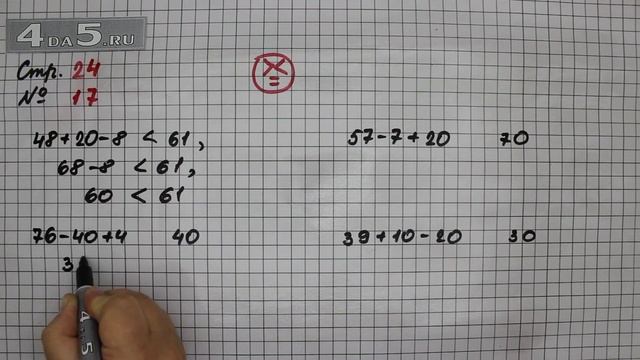 4DA5.RU
Стр. 24
№ 17
×
=
48+20-8 < 61,
68-8 < 61,
60 < 61
76-40+4 40
3
57-7+20 70
39+10-20 30
4DA5